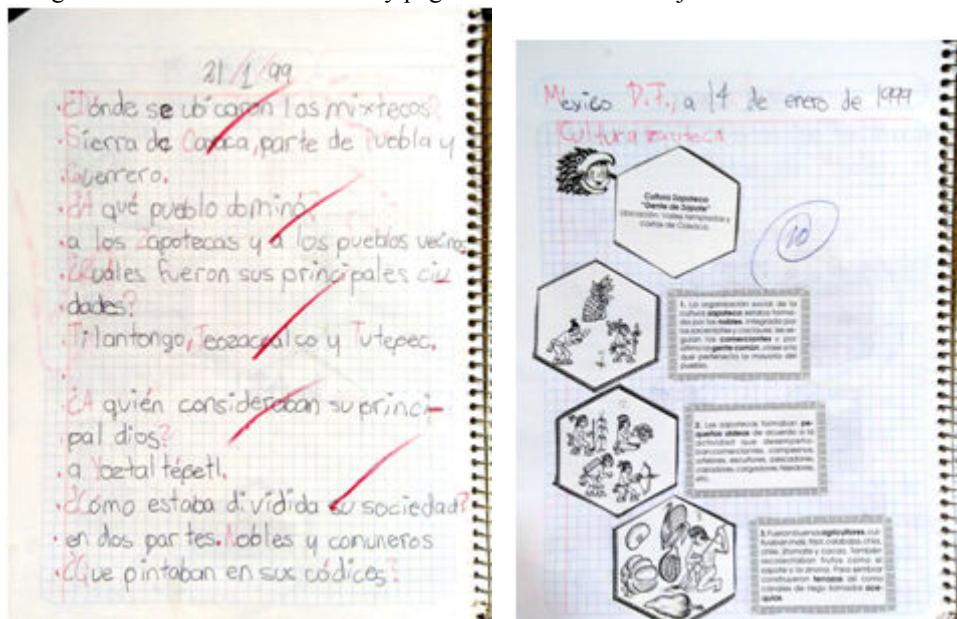 y pág
21/1/99
¿Dónde se ubicaron los mixtecos?
Sierra de Oaxaca, parte de Puebla y
Guerrero.
¿A qué pueblo dominó?
a los Zapotecas y a los pueblos vecinos
¿Cuáles fueron sus principales ciu
dades?
Tilantongo, Teozacoalco y Tutepec.
¿A quién consideraban su princi-
pal dios?
a Yoztaltépetl.
¿Cómo estaba dividida su sociedad?
en dos partes. Nobles y comuneros
¿Que pintaban en sus códices?
Mexico D.F., a 14 de enero de 1999
Cultura zapoteca
Cultura Zapoteca
"Gente de Zapote"
Ubicación: Valles templados y
costas de Oaxaca.
10
1. La organización social de la
cultura zapoteca estaba forma-
da por los nobles, integrada por
los sacerdotes y caciques, les se-
guían los comerciantes y por
último la gente común, clase a la
que pertenecía la mayoría del
pueblo.
2. Los zapotecas formaban pe-
queñas aldeas de acuerdo a la
actividad que desempeña-
ban: comerciantes, campesinos,
artesanos, escultores, pescadores,
cazadores, cargadores, tejedores,
etc.
3. Fueron buenos agricultores, cul-
tivaban maíz, frijol, calabaza, chía,
chile, jitomate y cacao. También
recolectaban frutos como el
zapote y la anona. Para sembrar
construyeron terrazas así como
canales de riego llamados ace-
quias.